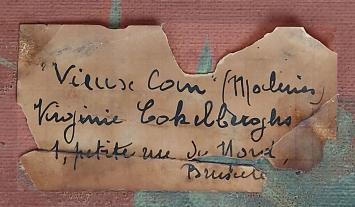 "Vieux Coin" (Malines)
Virginie Cokelberghs
1, petite rue du Nord,
Bruxelles